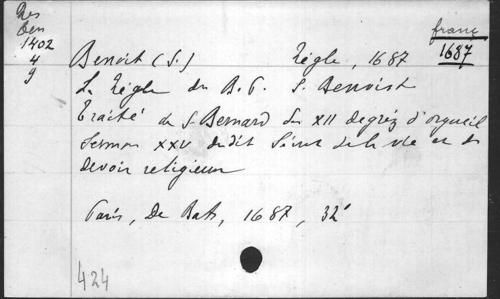 Res
Ben
1402
4
9
franç
1687
Benoit (S.) Règle, 1687
La Règle du B. P. S. Benoist
Traité de S. Bernard des XII degréz d'orgueil
Sermon XXV dudit Sainct de la vie et du
devoir religieux
Paris, De Bats, 1687, 32°
424